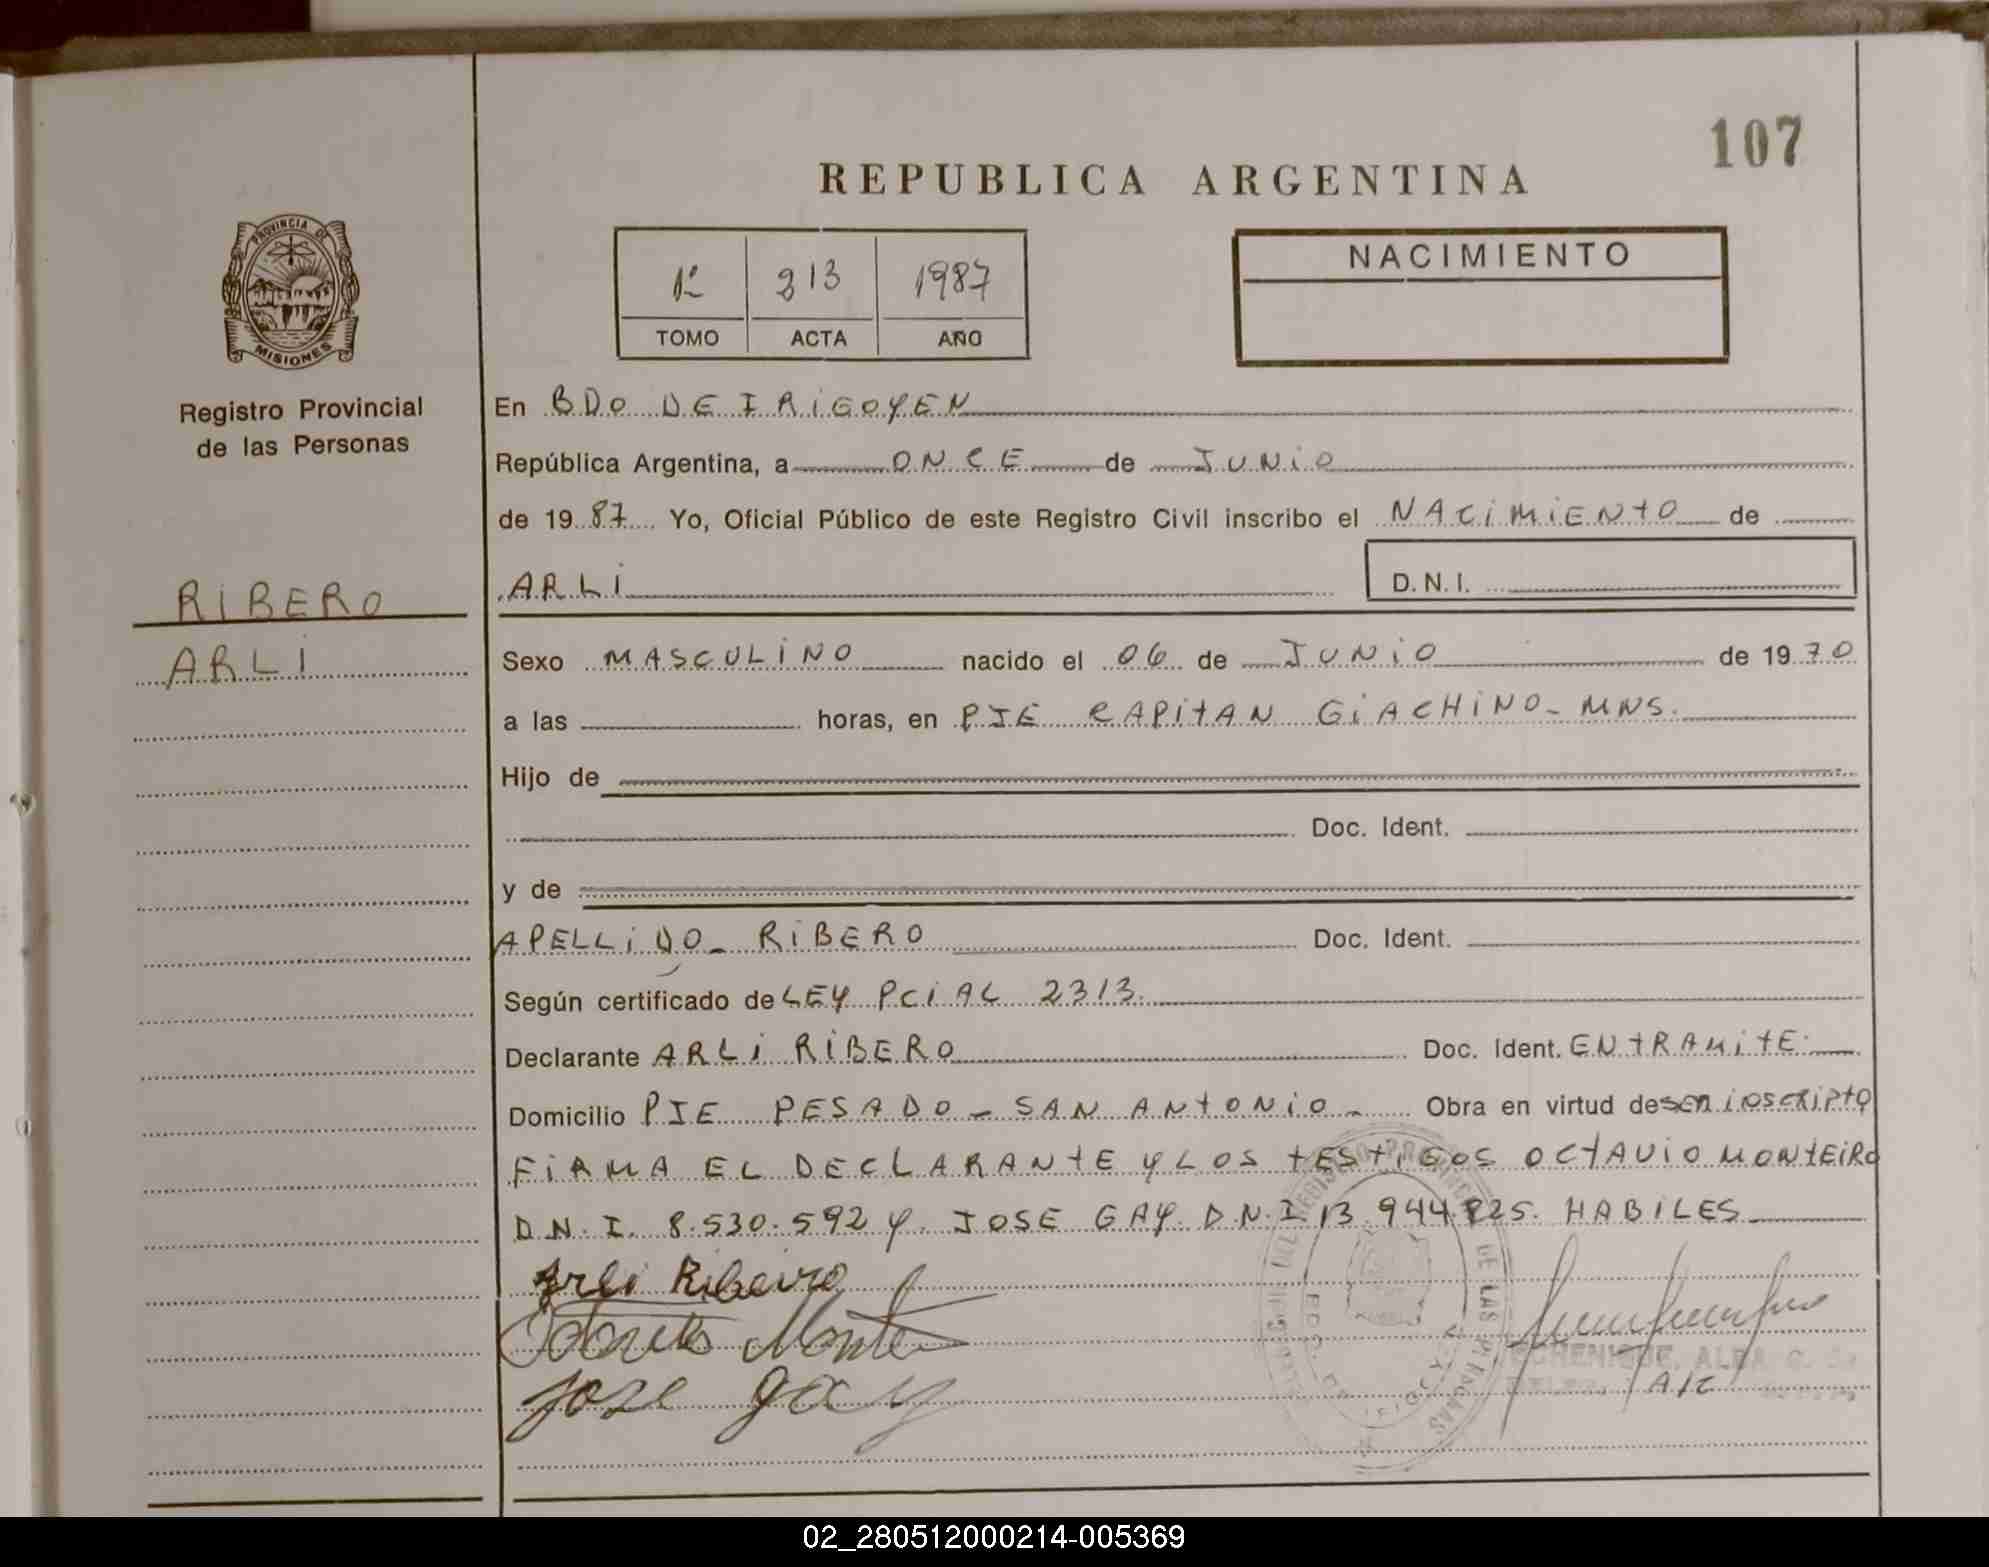 107
REPUBLICA ARGENTINA
PROVINCIA DE
MISIONES
Registro Provincial
de las Personas
1º 213 1987
TOMO ACTA AÑO
NACIMIENTO
RIBERO
ARLI
En BDO DE IRIGOYEN
República Argentina, a ONCE de JUNIO
de 19 87 Yo, Oficial Público de este Registro Civil inscribo el NACIMIENTO de
ARLI D.N.I.
Sexo MASCULINO nacido el 06 de JUNIO de 19 70
a las horas, en PJE CAPITAN GIACHINO - MNS.
Hijo de
Doc. Ident.
y de
APELLIDO - RIBERO Doc. Ident.
Según certificado de LEY PCIAL 2313.
Declarante ARLI RIBERO Doc. Ident. EN TRAMITE.
Domicilio PJE PESADO - SAN ANTONIO - Obra en virtud de SER INSCRIPTO
FIRMA EL DECLARANTE Y LOS TESTIGOS OCTAVIO MONTEIRO
D.N.I. 8.530.592 Y JOSE GAY D.N.I 13.944.825. HABILES
Arli Ribeiro
Jose Gay
DE LAS
A/C
02_280512000214-005369